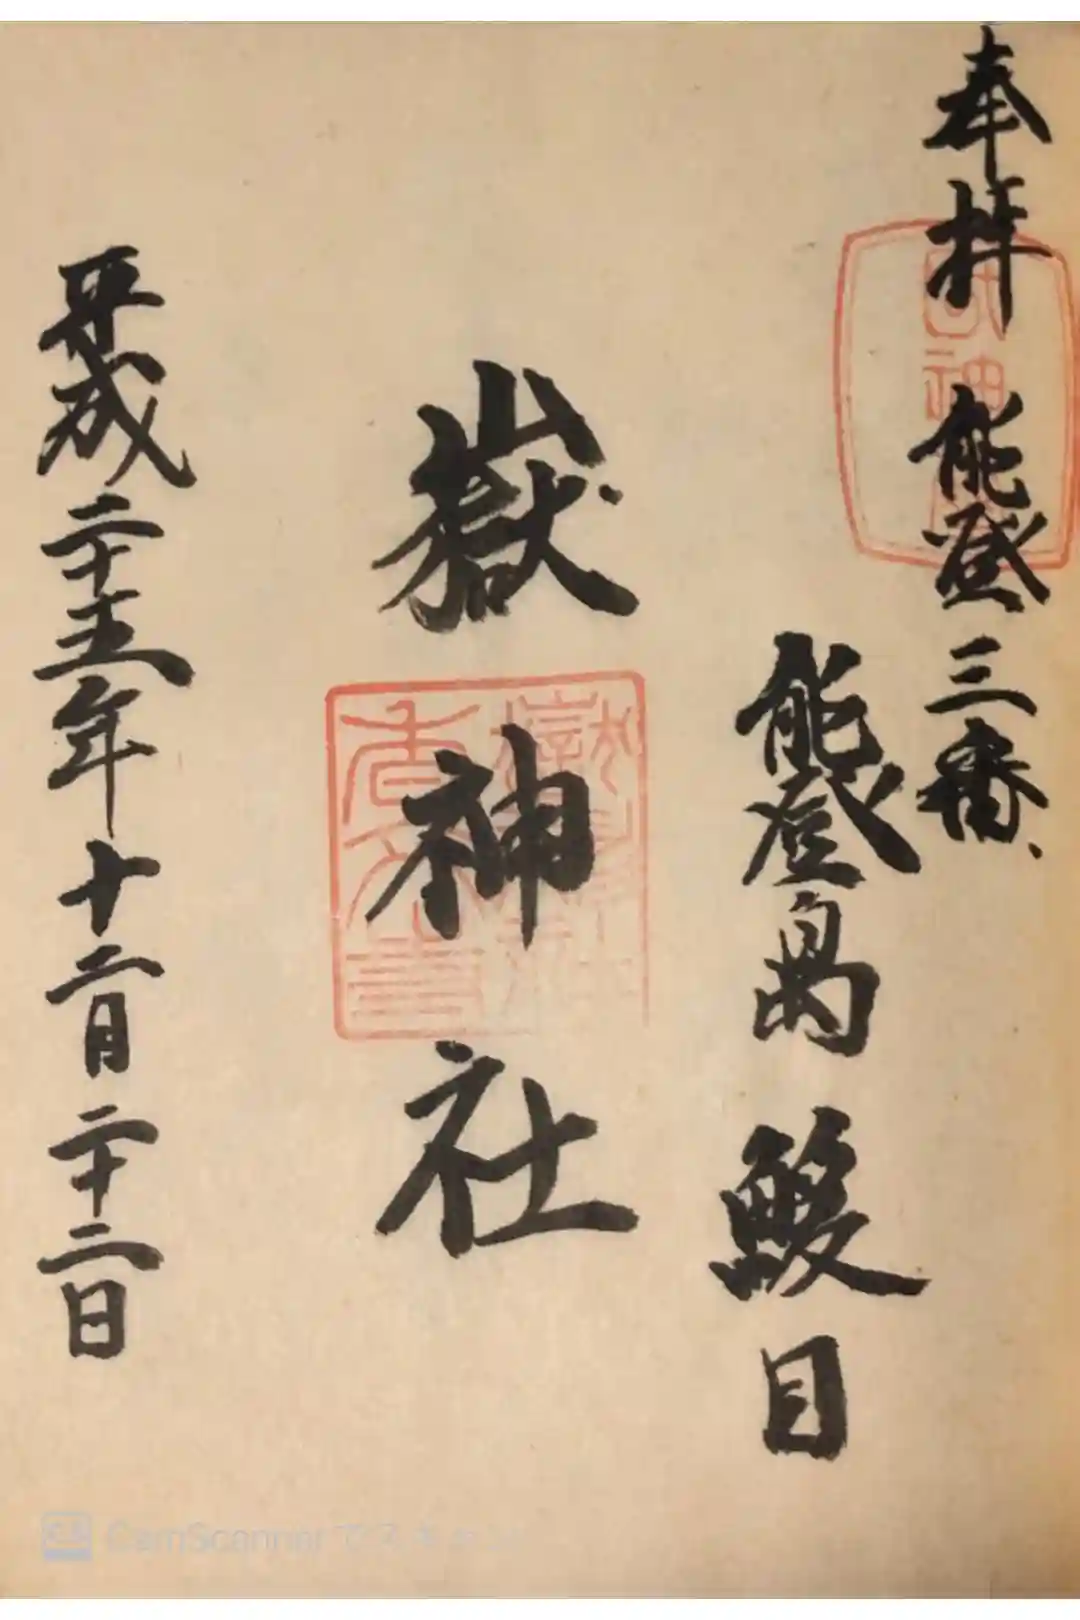 奉拝 能登三番、
能登島 鰀目
嶽神社
平成二十五年十二月二十二日
CamScanner でスキャン